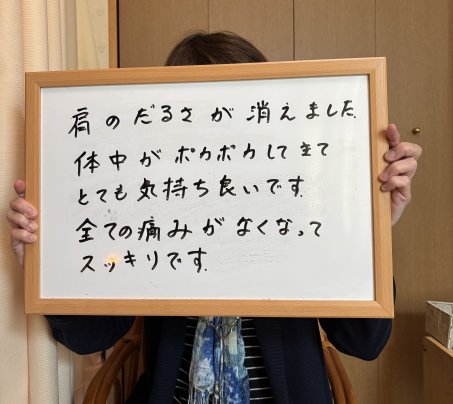 肩のだるさが消えました.
体中がポカポカしてきて
とても気持ち良いです.
全ての痛みがなくなって
スッキリです.